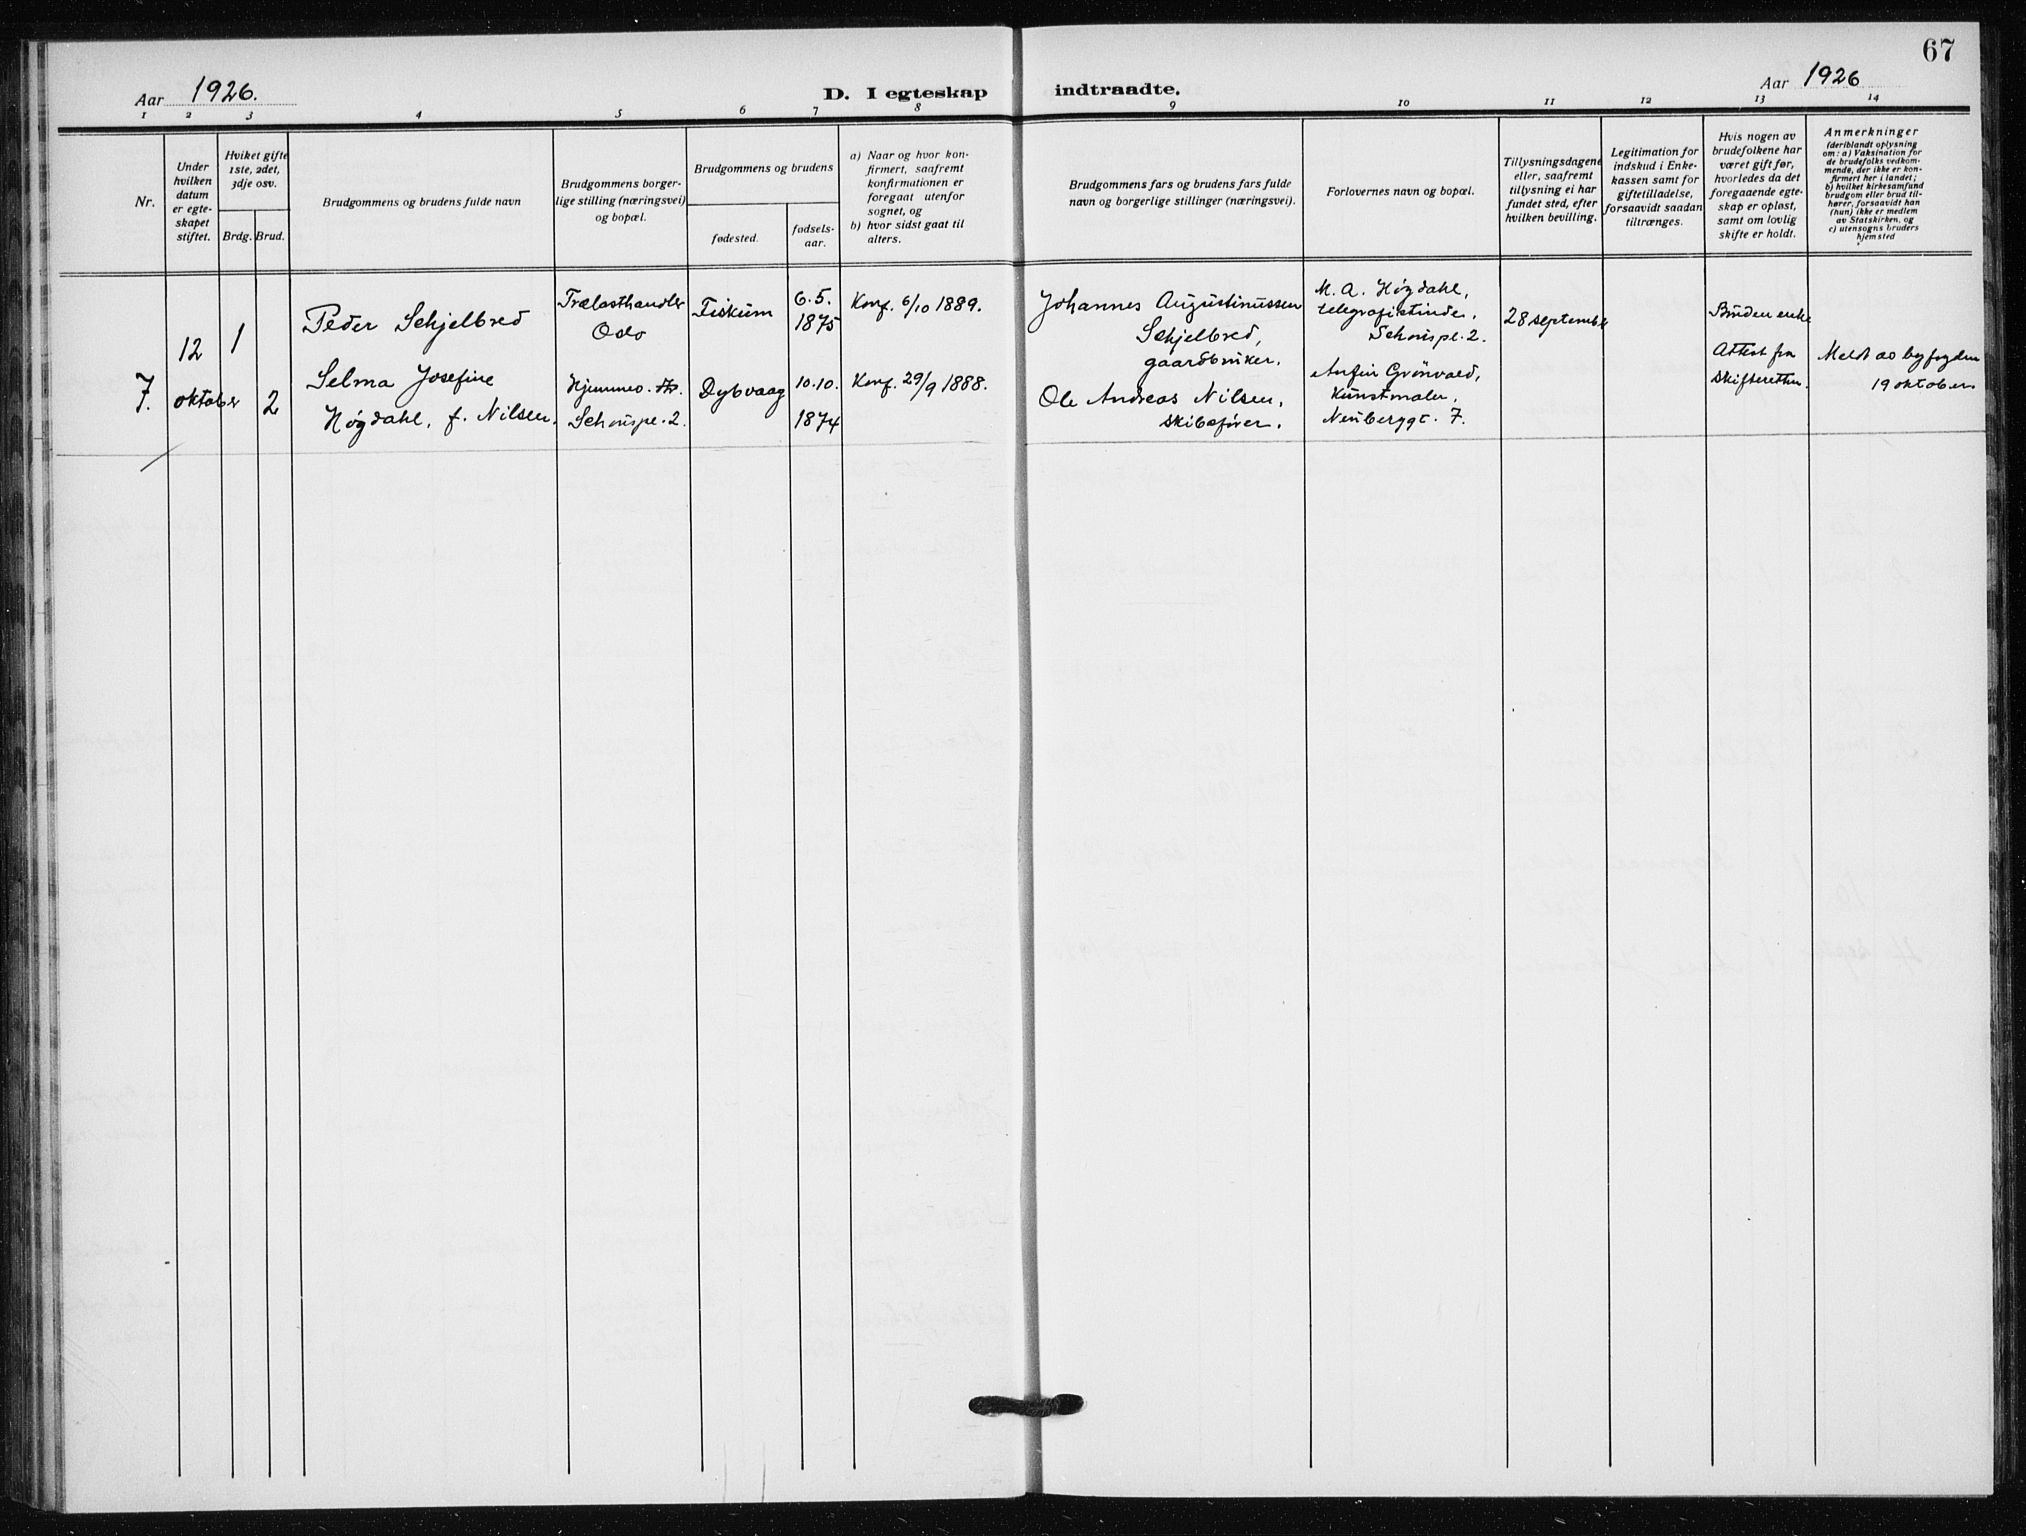 67
Aar 1926.
D. I egteskap indtraadte.
Aar 1926
1 2 3 4 5 6 7 8 9 10 11 12 13 14
Nr.
Under
hvilken
datum
er egte-
skapet
stiftet.
Hviket gifte
1ste, 2det,
3dje osv.
Brdg. Brud.
Brudgommens og brudens fulde navn
Brudgommens borger-
lige stilling (næringsvei)
og bopæl.
Brudgommens og brudens
fødested.
fødsels-
aar.
a) Naar og hvor kon-
firmert, saafremt
konfirmationen er
foregaat utenfor
sognet, og
b) hvor sidst gaat til
alters.
Brudgommens fars og brudens fars fulde
navn og borgerlige stillinger (næringsvei).
Forlovernes navn og bopæl.
Tillysningsdagene
eller, saafremt
tillysning ei har
fundet sted, efter
hvilken bevilling.
Legitimation for
indskud i Enke-
kassen samt for
giftetilladelse,
forsaavidt saadan
tiltrænges.
Hvis nogen av
brudefolkene har
været gift før,
hvorledes da det
foregaaende egte-
skap er opløst,
samt om lovlig
skifte er holdt.
Anmerkninger
(deriblandt oplysning
om: a) Vaksination for
de brudefolks vedkom-
mende, der ikke er kon-
firmert her i landet;
b) hvilket kirkesamfund
brudgom eller brud til-
hører, forsaavidt han
(hun) ikke er medlem
av Statskirken, og
c) utensogns bruders
hjemsted
7.
12
oktober
1
2
Peder Schjelbred
Selma Josefine
Høgdahl, f. Nilsen.
Trælasthandler
Oslo
Hjemmev.
Schouspl. 2.
Fiskum
Dybvaag
6.5.
1875
10.10.
1874
Konf. 6/10 1889.
Konf. 29/9 1888.
Johannes Augustinussen
Schjelbred,
gaardbruker.
Ole Andreas Nilsen,
skibsfører.
M. A. Høgdahl,
telegrafistinde,
Schouspl. 2.
Arnfin Grönvold,
Kunstmaler,
Neuberggt. 7.
28 september
Bruden enke
Attest fra
Skifteretten.
Meldt av byfogden
19 oktober